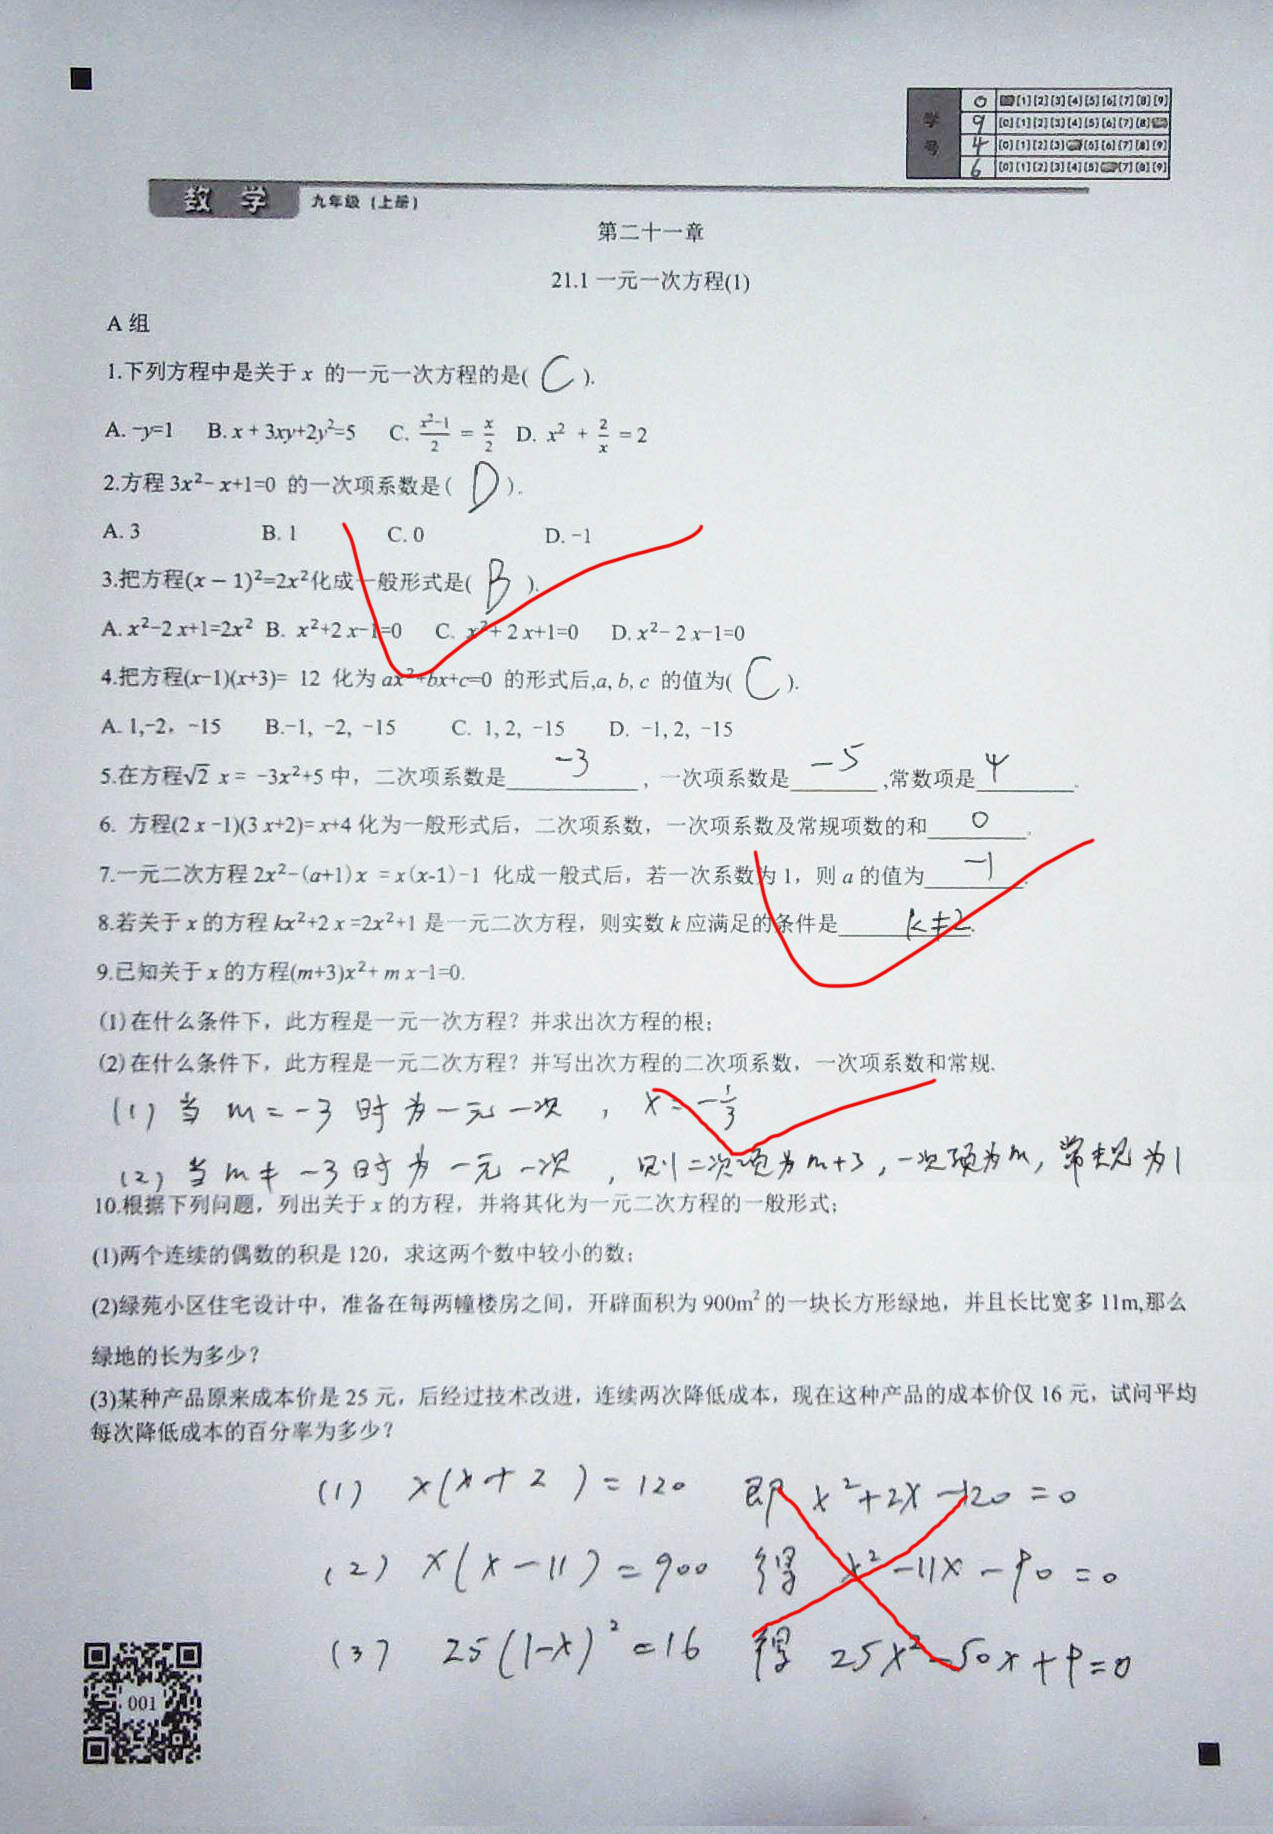 学号
0 [1][2][3][4][5][6][7][8][9]
9 [0][1][2][3][4][5][6][7][8]
4 [0][1][2][3][5][6][7][8][9]
6 [0][1][2][3][4][5][7][8][9]
数 学 九年级（上册）
第二十一章
21.1 一元一次方程(1)
A 组
1.下列方程中是关于 x 的一元一次方程的是( C ).
A. -y=1 B. x + 3xy+2y²=5 C. (x²-1)/2 = x/2 D. x² + 2/x = 2
2.方程 3x²- x+1=0 的一次项系数是( D ).
A. 3 B. 1 C. 0 D. -1
3.把方程(x - 1)²=2x²化成一般形式是( B ).
A. x²-2 x+1=2x² B. x²+2 x-1=0 C. x²+ 2 x+1=0 D. x²- 2 x-1=0
4.把方程(x-1)(x+3)= 12 化为 ax²+bx+c=0 的形式后,a, b, c 的值为( C ).
A. 1,-2，-15 B.-1, -2, -15 C. 1, 2, -15 D. -1, 2, -15
5.在方程√2 x = -3x²+5 中，二次项系数是 -3 ，一次项系数是 -5 ,常数项是 4 .
6. 方程(2 x -1)(3 x+2)= x+4 化为一般形式后，二次项系数，一次项系数及常规项数的和 0 .
7.一元二次方程 2x²-(a+1) x = x (x-1) -1 化成一般式后，若一次系数为 1，则 a 的值为 -1 .
8.若关于 x 的方程 kx²+2 x =2x²+1 是一元二次方程，则实数 k 应满足的条件是 k≠2 .
9.已知关于 x 的方程(m+3)x²+ m x-1=0.
(1)在什么条件下，此方程是一元一次方程？并求出次方程的根；
(2)在什么条件下，此方程是一元二次方程？并写出次方程的二次项系数，一次项系数和常规.
(1) 当 m = -3 时为一元一次 ， x = -1/3
(2) 当 m ≠ -3 时为一元一次 ，则二次项为m+3，一次项为m，常规为1
10.根据下列问题，列出关于 x 的方程，并将其化为一元二次方程的一般形式；
(1)两个连续的偶数的积是 120，求这两个数中较小的数；
(2)绿苑小区住宅设计中，准备在每两幢楼房之间，开辟面积为 900m² 的一块长方形绿地，并且长比宽多 11m,那么
绿地的长为多少？
(3)某种产品原来成本价是 25 元，后经过技术改进，连续两次降低成本，现在这种产品的成本价仅 16 元，试问平均
每次降低成本的百分率为多少？
(1) x(x+2) = 120 即 x²+2x-120=0
(2) x(x-11) = 900 得 x²-11x-90=0
(3) 25(1-x)²=16 得 25x²-50x+9=0
001